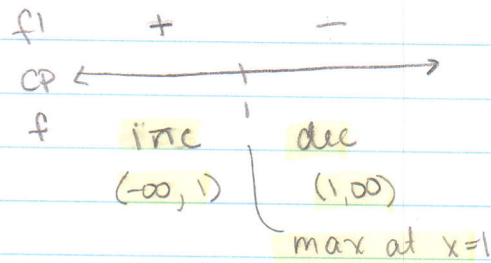 f' + -
CP
1
f inc dec
(-∞, 1) (1, ∞)
max at x=1